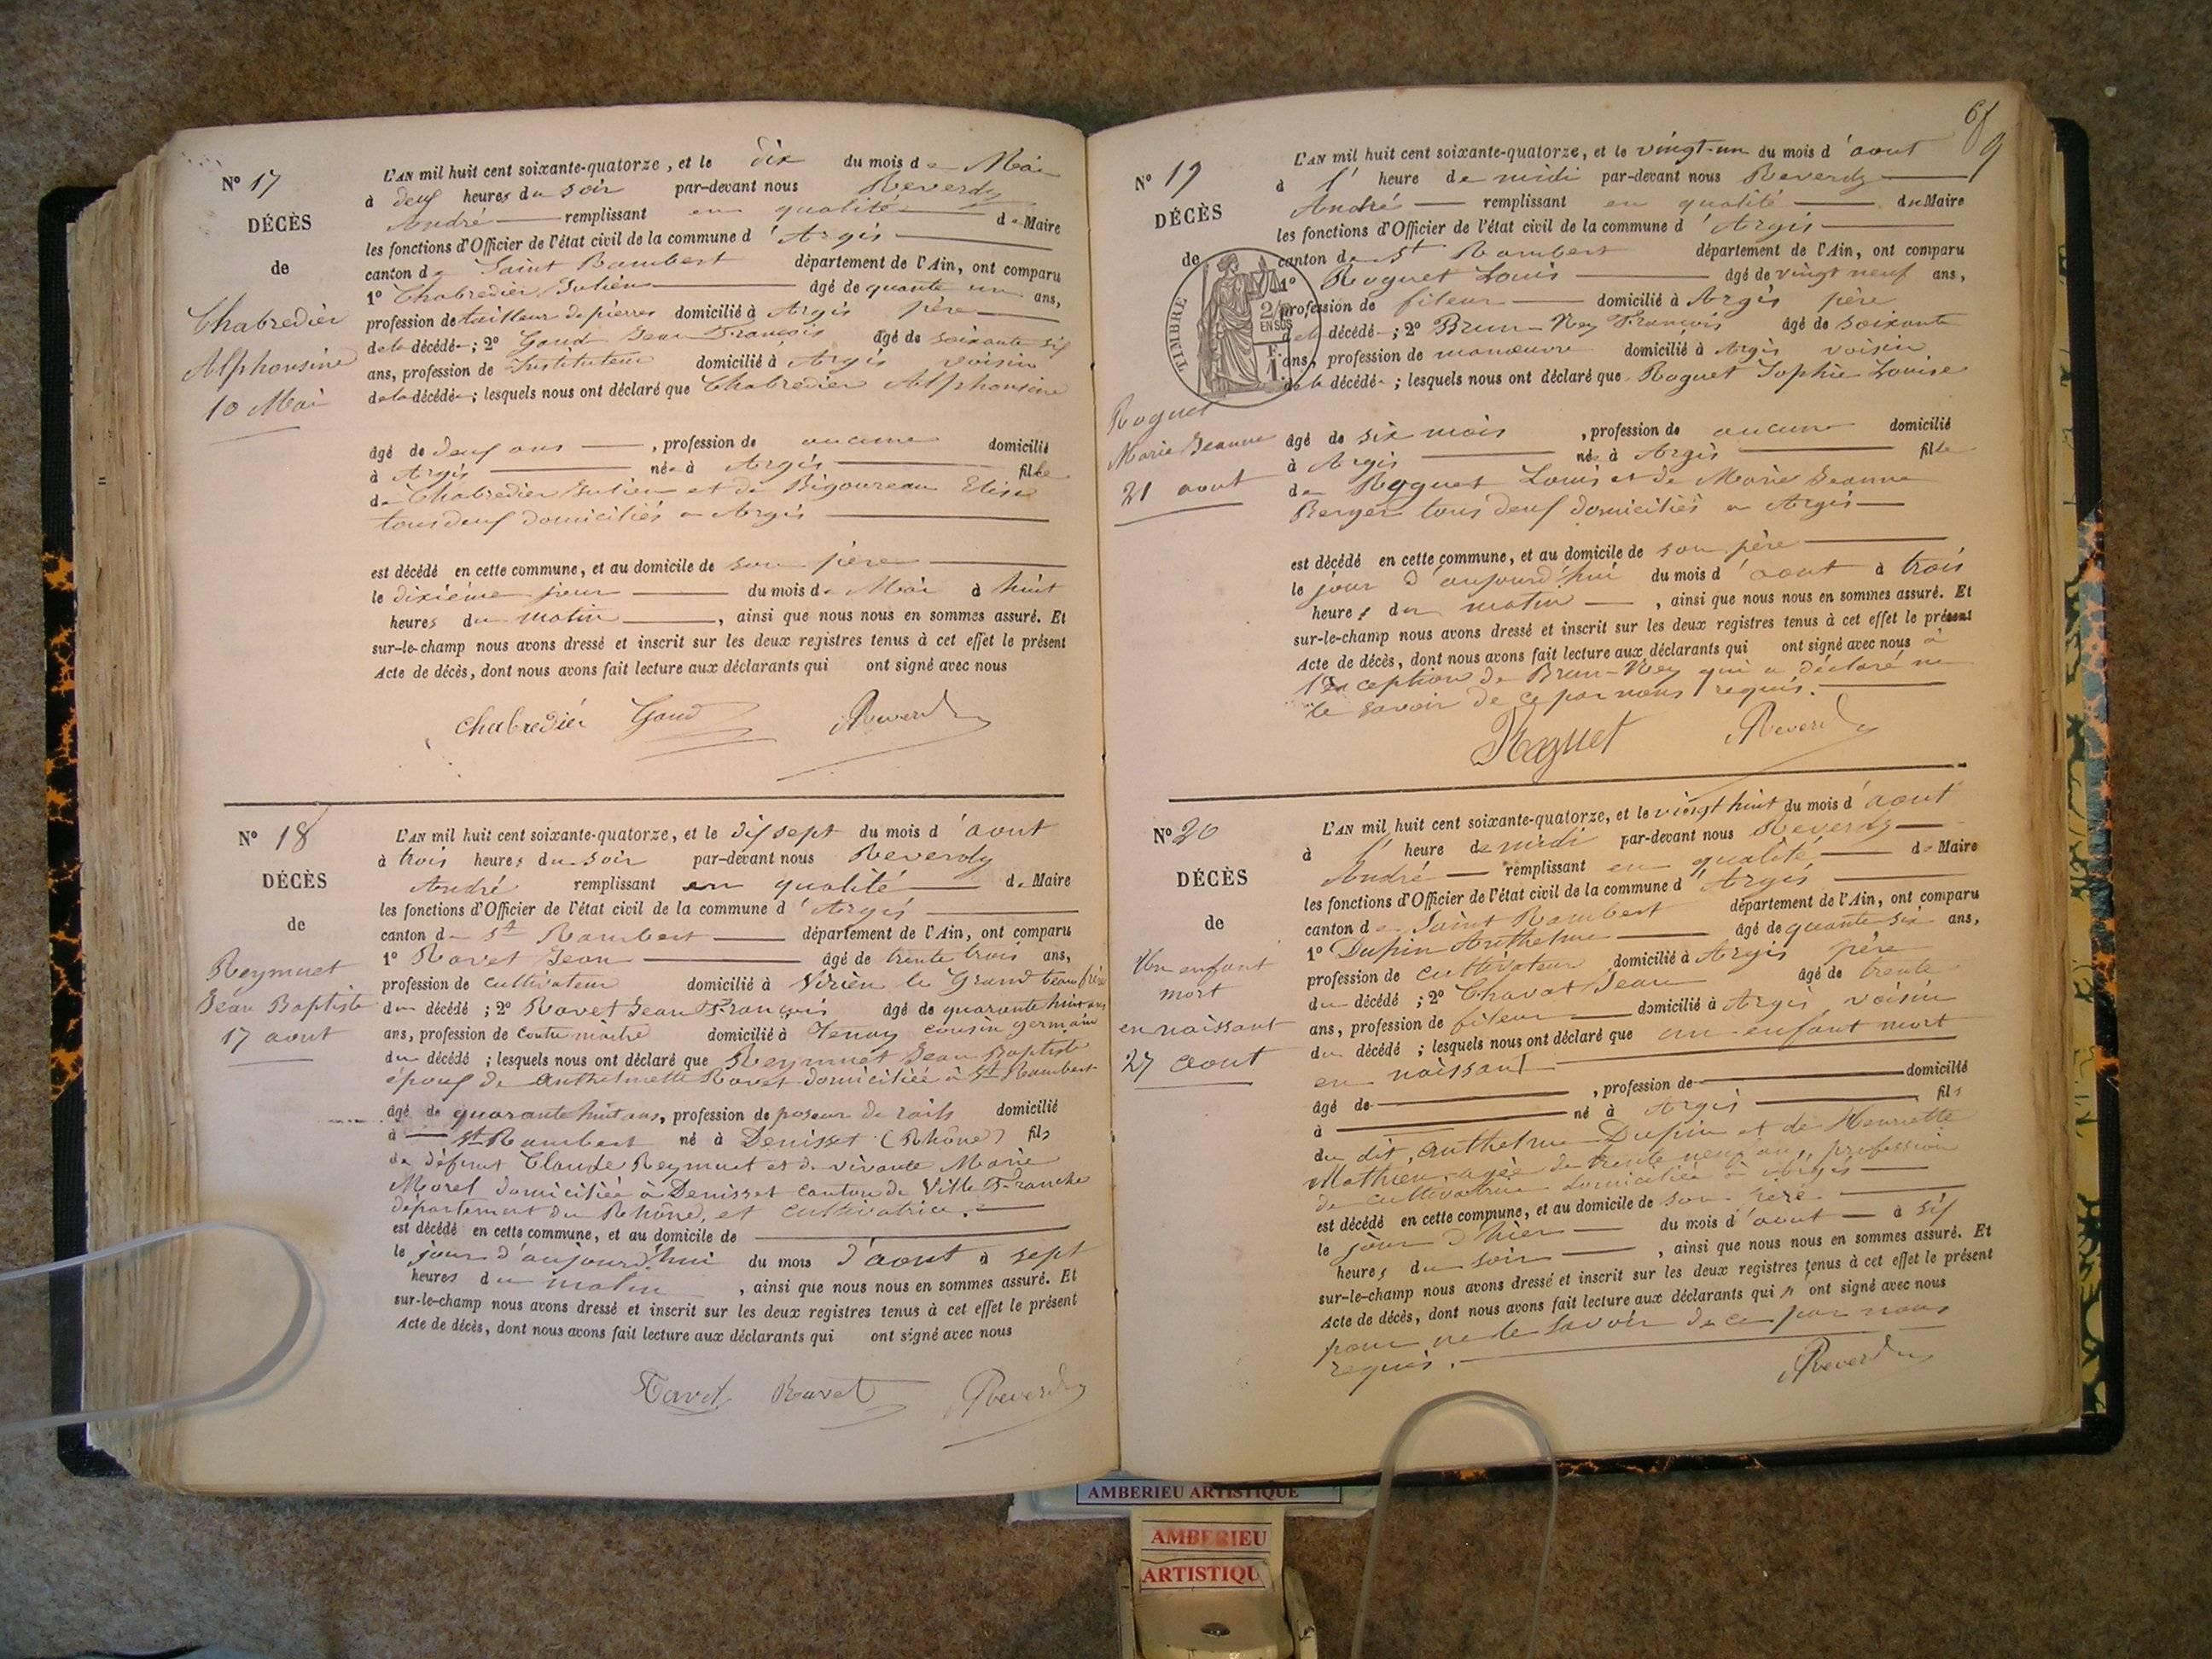 N° 17
DÉCÈS
de
Chabredier
Alphonsine
10 Mai
L'AN mil huit cent soixante-quatorze, et le dix du mois de Mai
à deux heures du soir par-devant nous Reverdy
André remplissant en qualité de Maire
les fonctions d'Officier de l'état civil de la commune d'Argis
canton de Saint Rambert département de l'Ain, ont comparu
1° Chabredier Julien âgé de quante un ans,
profession de tailleur de pierres domicilié à Argis père
de la décédée; 2° Goud Jean François âgé de soixante six
ans, profession de Instituteur domicilié à Argis voisin
de la décédée; lesquels nous ont déclaré que Chabredier Alphonsine
âgé de deux ans, profession de aucune domicilié
à Argis née à Argis fille
de Chabredier Julien et de Bigoureau Elise
tous deux domiciliés a Argis
est décédé en cette commune, et au domicile de son père
le dixième jour du mois de Mai à huit
heures du matin, ainsi que nous nous en sommes assuré. Et
sur-le-champ nous avons dressé et inscrit sur les deux registres tenus à cet effet le présent
Acte de décès, dont nous avons fait lecture aux déclarants qui ont signé avec nous
Chabredier Goud Reverdy
N° 18
DÉCÈS
de
Reymuet
Jean Baptiste
17 aout
L'AN mil huit cent soixante-quatorze, et le dix sept du mois d'aout
à trois heures du soir par-devant nous Reverdy
André remplissant en qualité de Maire
les fonctions d'Officier de l'état civil de la commune d'Argis
canton de St Rambert département de l'Ain, ont comparu
1° Ravet Jean âgé de trente trois ans,
profession de cultivateur domicilié à Virieu le Grand beau frère
du décédé; 2° Ravet Jean François âgé de quarante huit ans
ans, profession de Contre maitre domicilié à Tenay cousin germain
du décédé; lesquels nous ont déclaré que Reymuet Jean Baptiste
époux de Anthelmette Ravet domiciliée à St Rambert
âgé de quarante huit ans, profession de poseur de rails domicilié
à St Rambert né à Denisset (Rhône) fils
de défunt Claude Reymuet et de vivante Marie
Morel domiciliée à Denisset canton de Ville Franche
département du Rhône, et cultivatrice.
est décédé en cette commune, et au domicile de
le jour d'aujourd'hui du mois d'aout à sept
heures du matin, ainsi que nous nous en sommes assuré. Et
sur-le-champ nous avons dressé et inscrit sur les deux registres tenus à cet effet le présent
Acte de décès, dont nous avons fait lecture aux déclarants qui ont signé avec nous
Ravet Reverdy
69
N° 19
DÉCÈS
de
TIMBRE
2/10
EN SUS
Roguet
Marie Jeanne
21 aout
L'AN mil huit cent soixante-quatorze, et le vingt-un du mois d'aout
à 1' heure de midi par-devant nous Reverdy
André remplissant en qualité du Maire
les fonctions d'Officier de l'état civil de la commune d'Argis
canton de St Rambert département de l'Ain, ont comparu
1° Roguet Louis âgé de vingt neuf ans,
profession de fileur domicilié à Argis père
de la décédée; 2° Brun-Ney François âgé de soixante
ans, profession de manœuvre domicilié à Argis voisin
de la décédée; lesquels nous ont déclaré que Roguet Sophie Louise
âgé de six mois, profession de aucune domicilié
à Argis née à Argis fille
de Roguet Louis et de Marie Jeanne
Berger tous deux domiciliés a Argis
est décédé en cette commune, et au domicile de son père
le jour d'aujourd'hui du mois d'aout à trois
heures du matin, ainsi que nous nous en sommes assuré. Et
sur-le-champ nous avons dressé et inscrit sur les deux registres tenus à cet effet le présent
Acte de décès, dont nous avons fait lecture aux déclarants qui ont signé avec nous à
l'exception de Brun-Ney qui a déclaré ne
le savoir de ce par nous requis.
Roguet Reverdy
N° 20
DÉCÈS
de
Un enfant
mort
en naissant
27 aout
L'AN mil huit cent soixante-quatorze, et le vingt huit du mois d'aout
à 1' heure de midi par-devant nous Reverdy
André remplissant en qualité de Maire
les fonctions d'Officier de l'état civil de la commune d'Argis
canton de Saint Rambert département de l'Ain, ont comparu
1° Dupin Anthelme âgé de quante six ans,
profession de cultivateur domicilié à Argis père
du décédé; 2° Chavat Jean âgé de trente
ans, profession de fileur domicilié à Argis voisin
du décédé; lesquels nous ont déclaré que un enfant mort
en naissant
âgé de, profession de domicilié
à né à Argis fils
du dit, Anthelme Dupin et de Henriette
Mathieu, agée de trente neuf ans, profession
de cultivatrice domiciliée à Argis
est décédé en cette commune, et au domicile de son père
le jour d'hier du mois d'aout à six
heures du soir, ainsi que nous nous en sommes assuré. Et
sur-le-champ nous avons dressé et inscrit sur les deux registres tenus à cet effet le présent
Acte de décès, dont nous avons fait lecture aux déclarants qui n'ont signé avec nous
pour ne le savoir de ce par nous
requis.
Reverdy
AMBERIEU ARTISTIQUE
AMBERIEU
ARTISTIQU